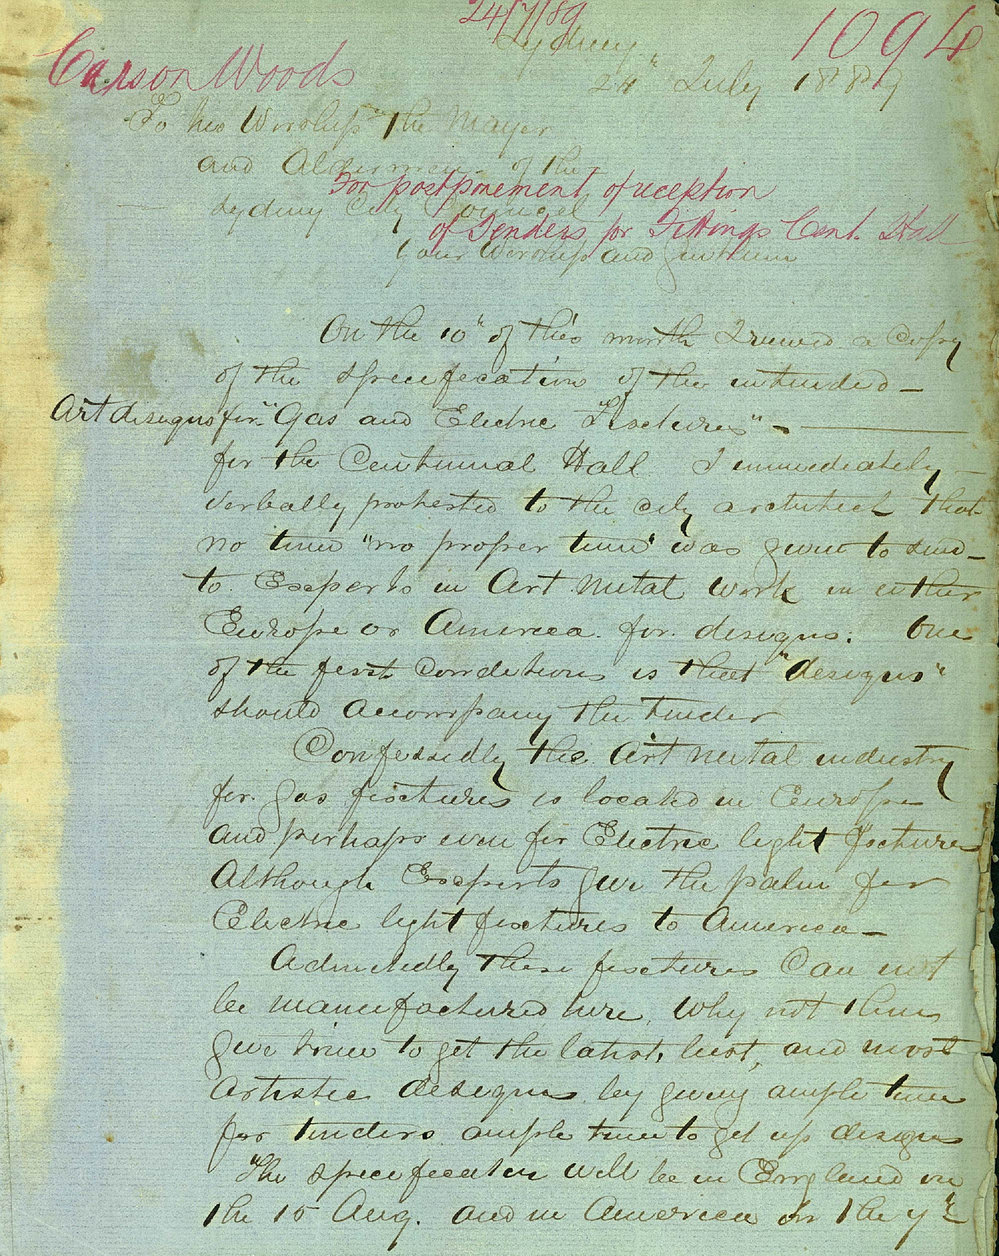 24/7/89
1094
Carson Woods
Sydney
24" July 1889
To his Worship The Mayer
and Aldermen of the
Sydney City Councel
For postponement of reception
of Tenders for Fittings Cent. Hall
Your Worship and Gentlemen
On the 10" of this month I received a Copy
of the specefecation of the intended —
Art designs for "Gas and Electric "Fixtures" —
for the Centennial Hall I immediately —
verbally protested to the city architect that
no time "no proper time" was given to send —
to Experts in Art Metal work in either
Europe or America. for designs. One
of the first Conditions is that "designs"
should accompany the tender
Confessedly the Art metal industry
for gas fixtures is located in Europe
and perhaps even for Electric light fixtures
Although Experts give the palm for
Electric light fixtures to America —
Admittedly these fixtures Can not
be manufactured here, Why not then
give time to get the latest, best, and most
artistic designs by giving ample time
for tenders. ample time to get up designs
The specefecation will be in England on
the 15 Aug. and in America on the 7"